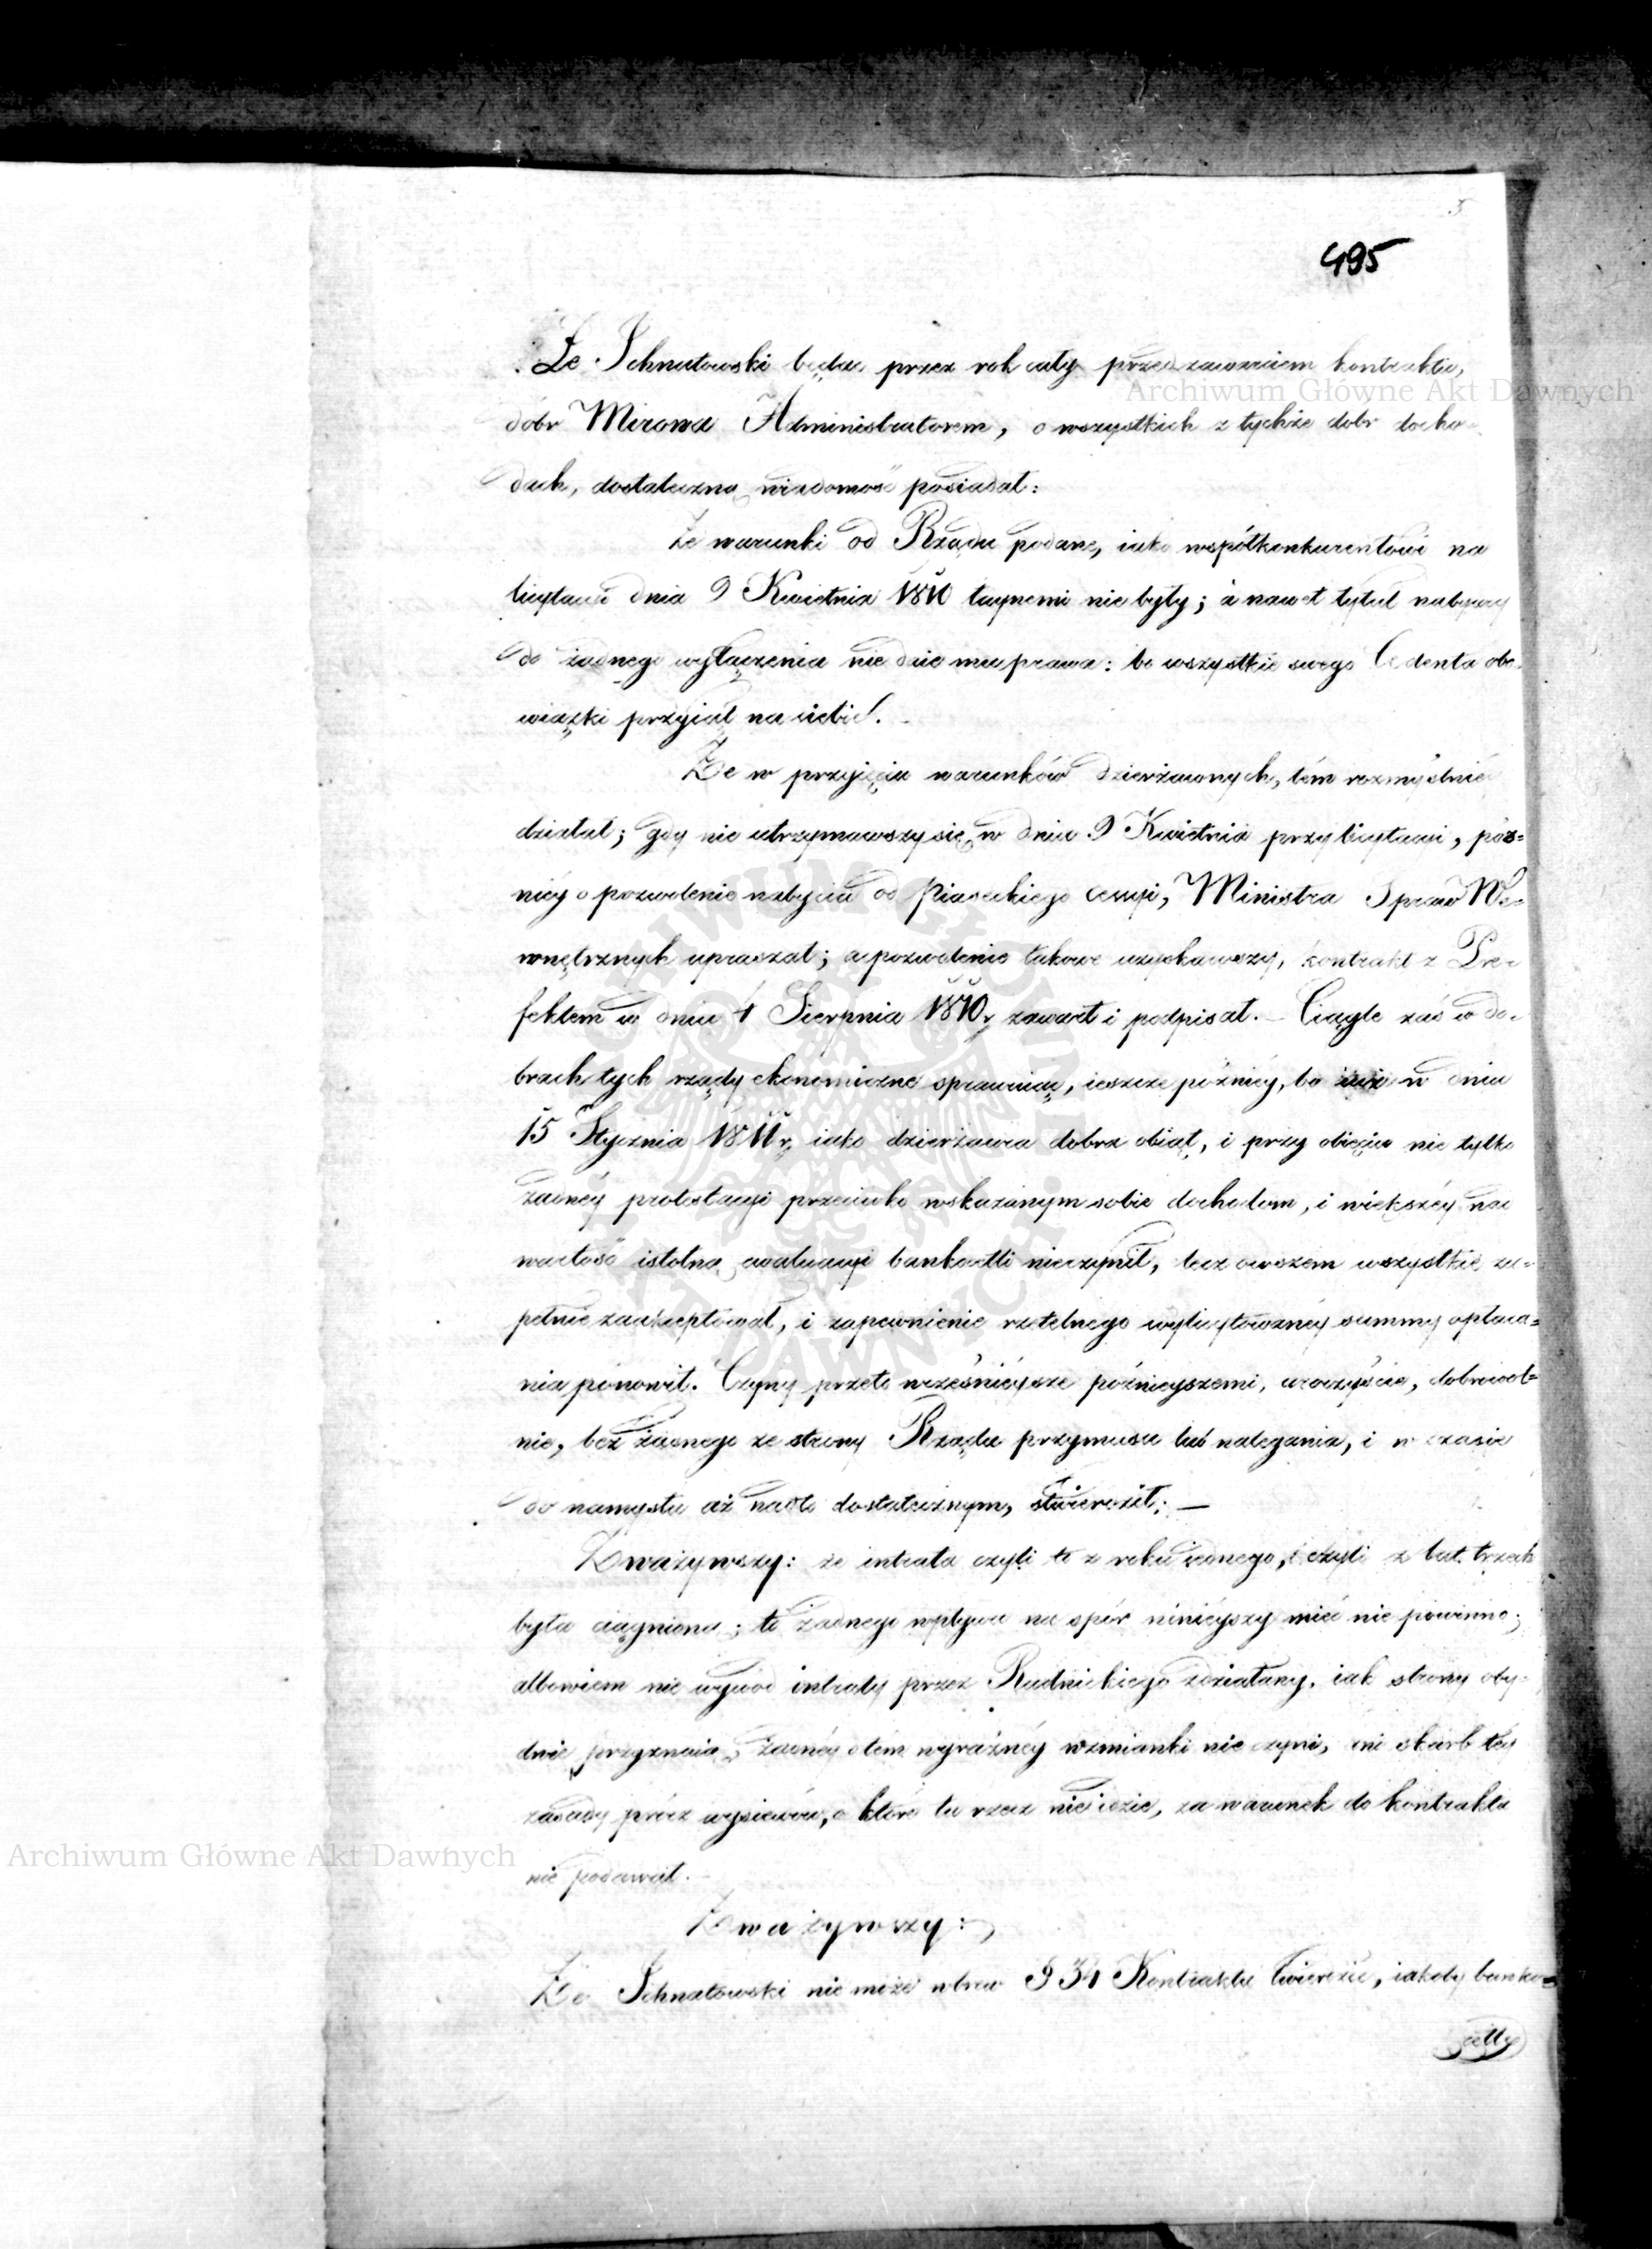 5
495
Że Ichnatowski będąc przez rok cały przed zawarciem kontraktu,
dóbr Mirowa Administratorem, o wszystkich z tychże dobr docho-
dach, dostateczną wiadomość posiadał:
Że warunki od Rządu podane, iako współkonkurentowi na
licytacyi dnia 9 Kwietnia 1810 taynemi nie były; a nawet tytuł nabywcy
do żadnego wyłączenia nie daie mu prawa: bo wszystkie swego Cedenta obo-
wiązki przyiął na siebie.
Że w przyięciu warunków dzierżawnych, tém rozmyślniéy
działał; gdy nie utrzymawszy się w dniu 9 Kwietnia przy licytacyi, póz=
niéy o pozwolenie nabycia od Piaseckiego cessyi, Ministra Spraw We=
wnętrznych upraszał; a pozwolenie takowe uzyskawszy, kontrakt z Pre-
fektem w dniu 4 Sierpnia 1810 r. zawarł i podpisał. – Ciągle zaś w do-
brach tych rządy ekonomiczne sprawuiąc, ieszcze późniéy, bo iuż w dniu
15 Stycznia 1811 r. iako dzierżawca dobra obiął, i przy obięciu nie tylko
żadnéy protestacyi przeciwko wskazanym sobie dochodom, i większéy nad
wartość istotną ewaluacyi bankocetli nieczynił, lecz owszem wszystkie zu=
pełnie zaakceptował, i zapewnienie rzetelnego wylicytowanéy summy opłaca=
nia ponowił. Czyny przeto wcześniéysze późnieyszemi, uroczyście, dobrowol=
nie, bez żadnego ze strony Rządu przymusu lub nalegania, i w czasie
do namysłu aż nadto dostatecznym, stwierdził; —
Zważywszy: że intrata czyli to z roku iednego, czyli z lat trzech
była ciągniona; to żadnego wpływu na spór niniéyszy mieć nie powinno;
albowiem nie wywód intraty przez Rudnickiego zdziałany, iak strony oby-
dwie przyznaią, żadnéy o tém wyraźnéy wzmianki nie czyni, ani skarb téy
zasady prócz wysiewów, o które tu rzecz nie idzie, za warunek do kontraktu
nie podawał. –
Zważywszy:
Że Ichnatowski nie może wbrew § 34 Kontraktu twierdzić, iakoby banko=
cetly